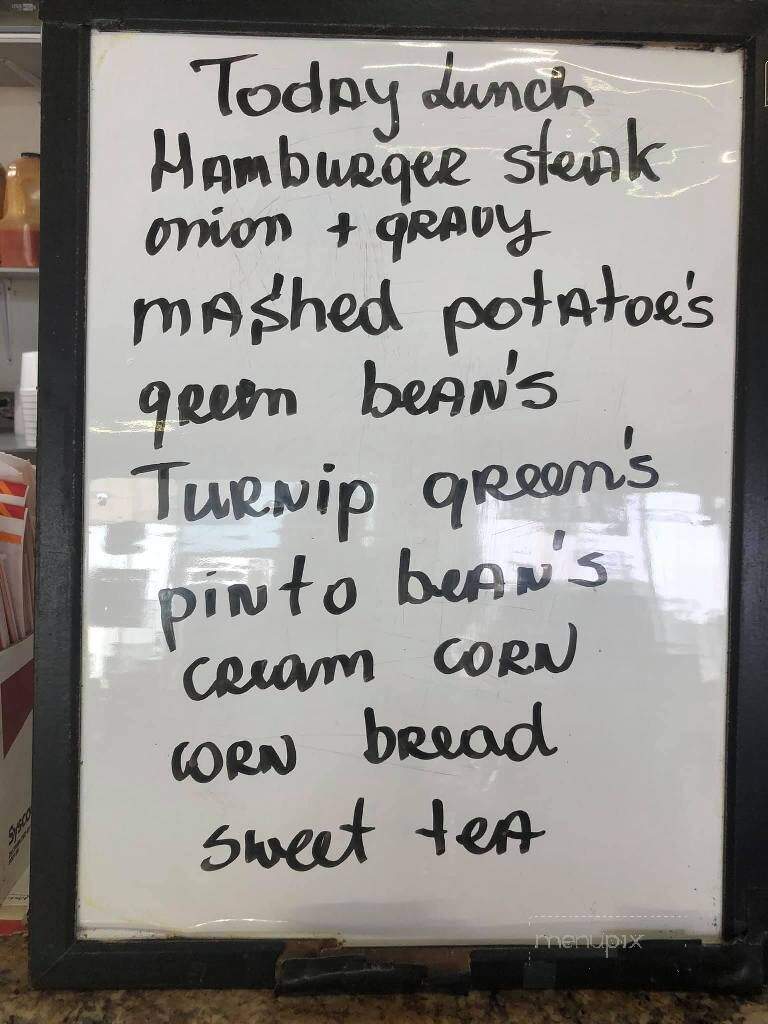 Today Lunch
Hamburger steak
onion + gravy
mashed potatoe's
green bean's
Turnip green's
pinto bean's
cream corn
corn bread
sweet tea
Sysco
menupix